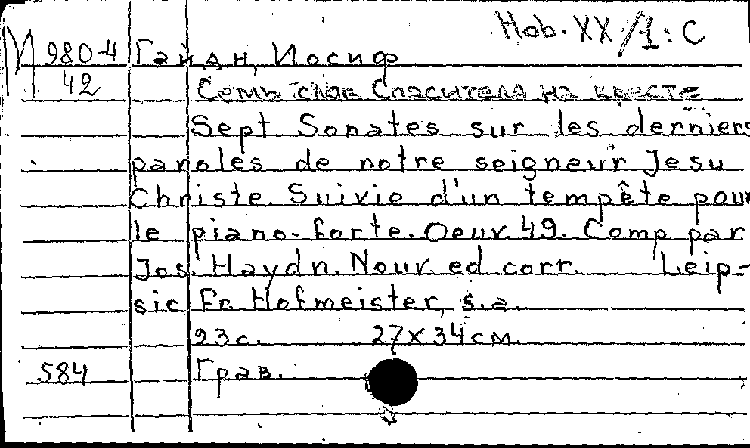 Hob. XX/1: C
М 980-4 Гайдн, Иосиф
42 Семь слов Спасителя на кресте
Sept Sonates sur les derniers
paroles de notre seigneur Jesu
Christe. Suivie d'un tempête pour
le piano-forte. Oeuv. 49. Comp par
Jos. Haydn. Nouv ed corr. Leip-
sic Fr. Hofmeister, s.a.
23 с. 27х34 см.
584 Грав.